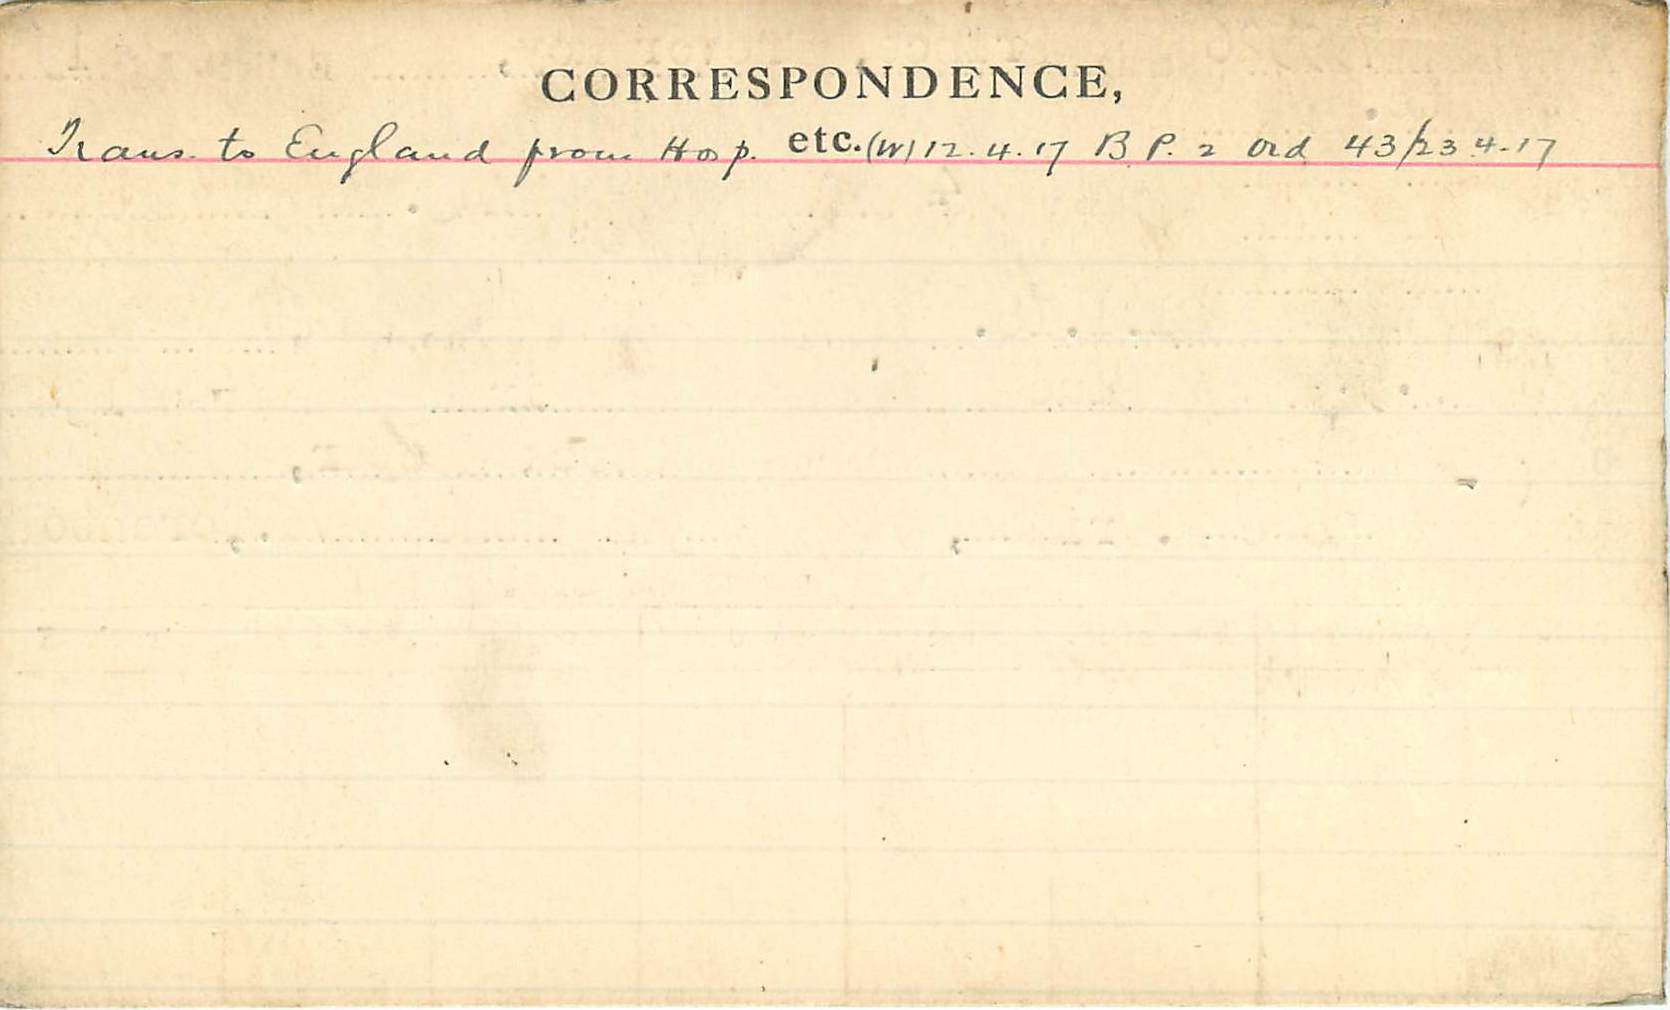 CORRESPONDENCE,
etc.
Trans. to England from Hosp. (W) 12.4.17 B.P. 2 Ord 43/23.4.17